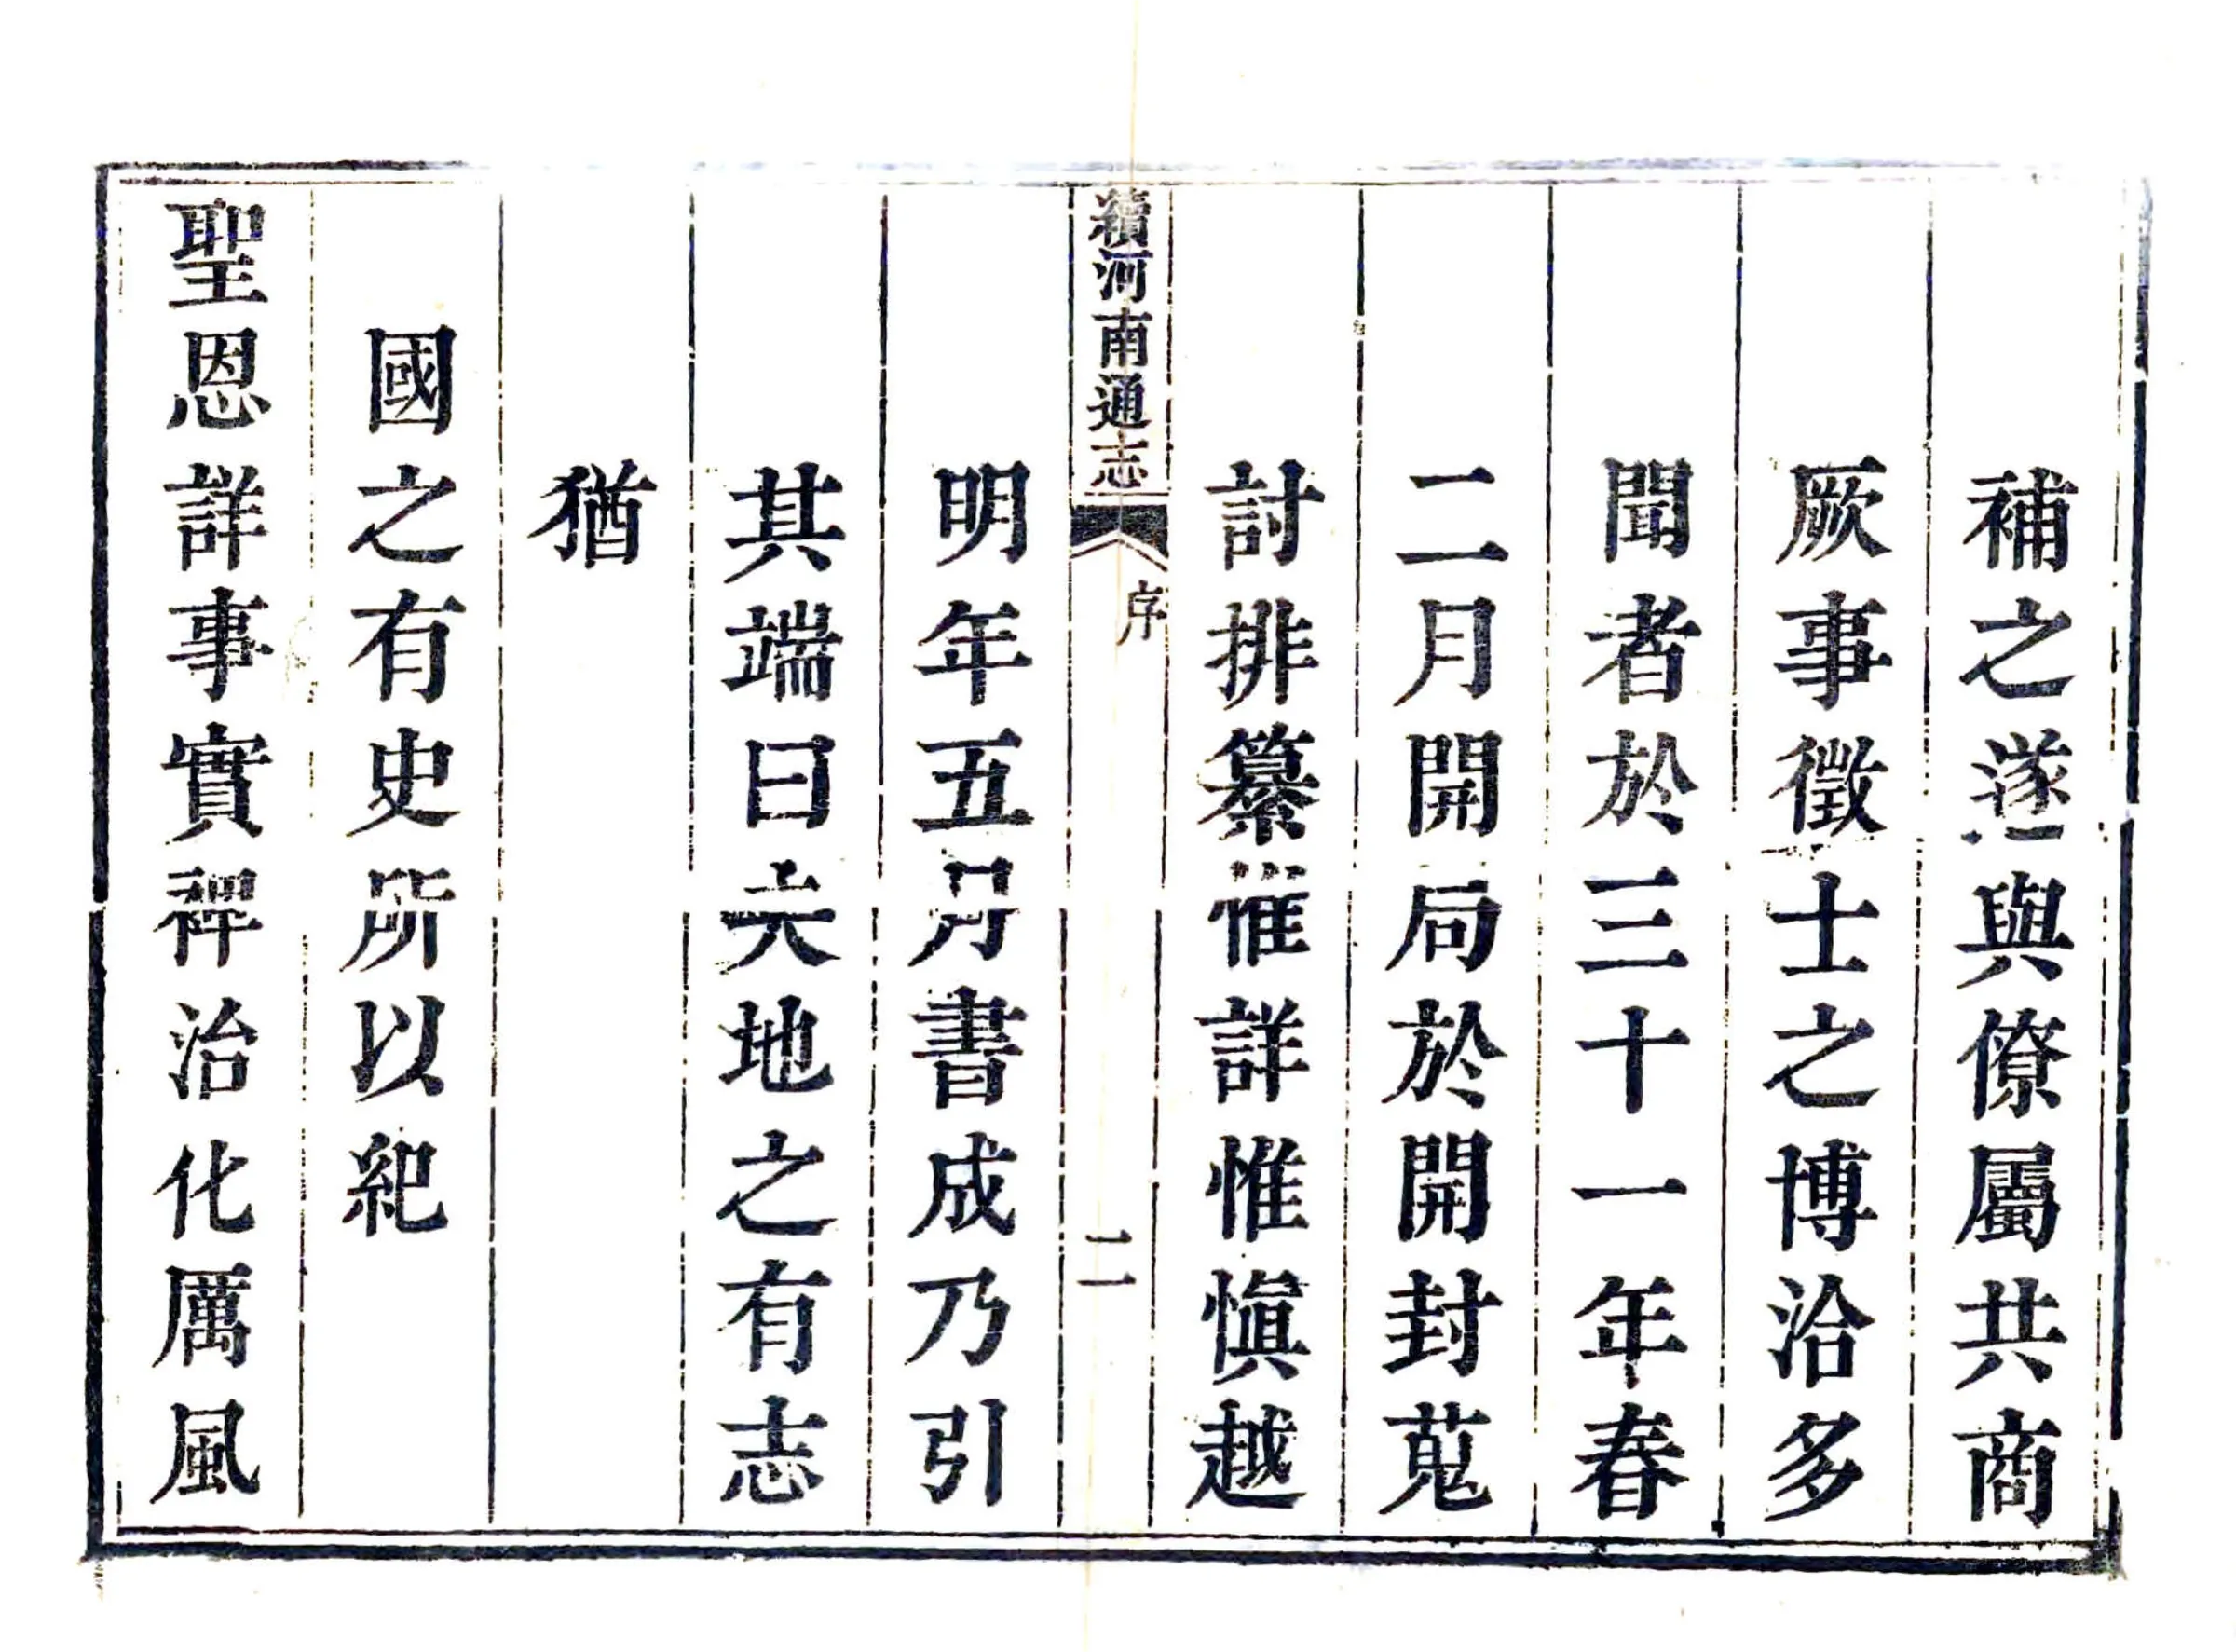 補之遂與僚屬共商
厥事徵士之博洽多
聞者於三十一年春
二月開局於開封蒐
討排纂惟詳惟愼越
續河南通志
序
二
明年五月書成乃引
其端曰天地之有志
猶
國之有史所以紀
聖恩詳事實裨治化厲風